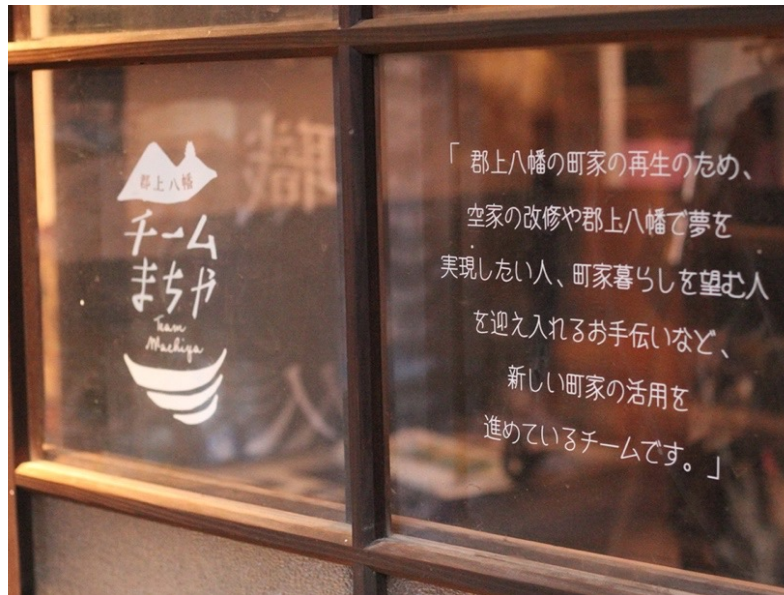 郡上八幡
チーム
まちや
Team
Machiya
職
人
「郡上八幡の町家の再生のため、
空家の改修や郡上八幡で夢を
実現したい人、町家暮らしを望む人
を迎え入れるお手伝いなど、
新しい町家の活用を
進めているチームです。」